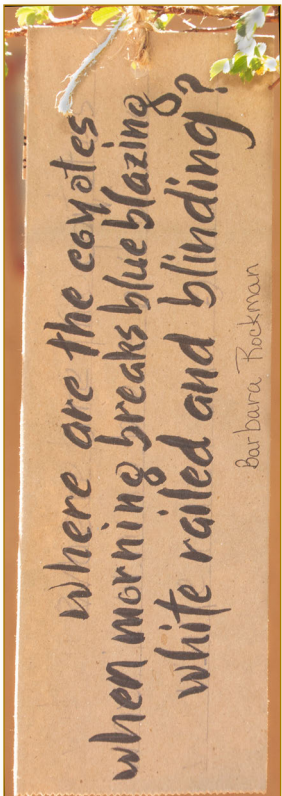 where are the coyotes
when morning breaks blue blazing
white railed and blinding?
Barbara Rockman